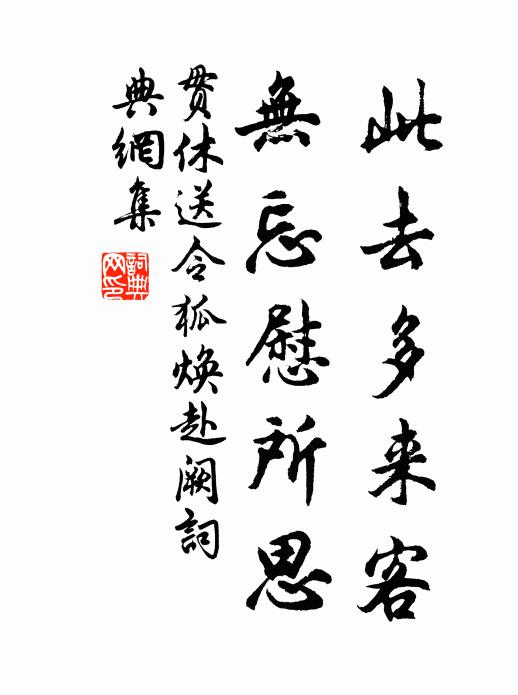 此去多来客
無忘慰所思
貫休送令狐煥赴闕詞
典網集
詞典网印